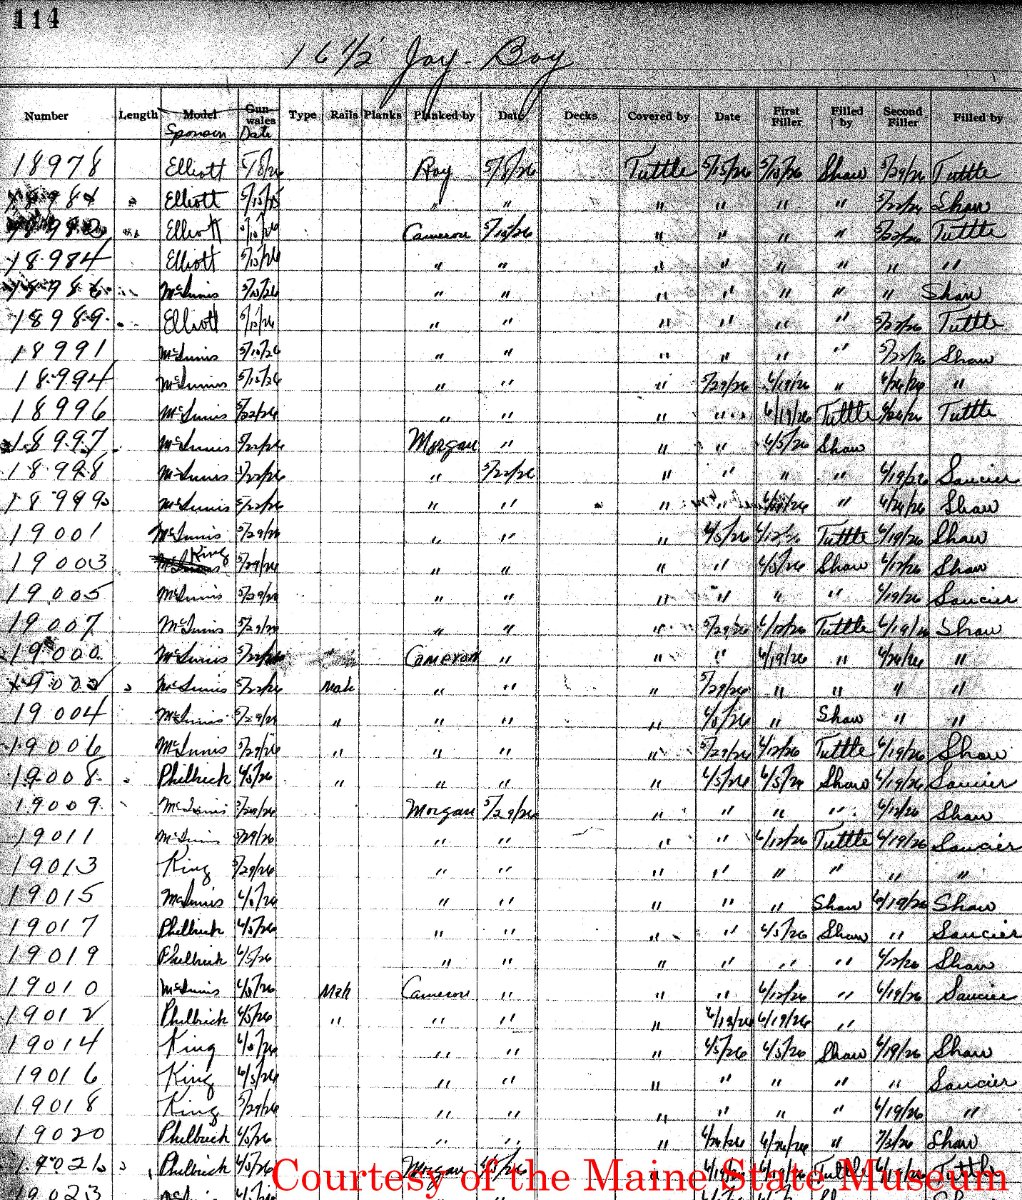 114
16 1/2' Joy-Boy
Number Length Model Gunwales Type Rails Planks Planked by Date Decks Covered by Date First Filler Filled by Second Filler Filled by
Sponson Date
18978 Elliott 5/8/26 Roy 5/8/26 Tuttle 5/15/26 Shaw 5/29/26 Tuttle
Elliott " " " " " " Shaw
Elliott Cameron 5/10/26 " " " " 5/22/26 Tuttle
18984 Elliott " " " " " " " "
McInnis 5/10/26 " " " " " " " Shaw
18989 Elliott " " " " " " 5/22/26 Tuttle
18991 McInnis 5/10/26 " " " " " " Shaw
18994 McInnis " " " 5/29/26 6/19/26 " 6/26/26 "
18996 McInnis 5/22/26 " " " " 6/19/26 Tuttle 6/26/26 Tuttle
18997 McInnis 5/22/26 Morgan " " " 6/5/26 Shaw
18998 McInnis 5/22/26 " 5/22/26 " " " " 6/19/26 Saucier
18999 McInnis 5/22/26 " " " " " 6/26/26 Shaw
19001 McInnis 5/29/26 " " " 6/5/26 6/12/26 Tuttle 6/19/26 Shaw
19003 King 5/29/26 " " " " 6/5/26 Shaw 6/12/26 Shaw
19005 McInnis 5/29/26 " " " " " " 6/19/26 Saucier
19007 McInnis 5/29/26 " " " 5/29/26 6/12/26 Tuttle 6/19/26 Shaw
19000 McInnis 5/22/26 Cameron " " " 6/19/26 " 6/26/26 "
McInnis 5/22/26 Mah " " " 5/29/26 " " " "
19004 McInnis 5/29/26 " " " " 6/5/26 " Shaw " "
19006 McInnis 5/29/26 " " " " 5/29/26 6/12/26 Tuttle 6/19/26 Shaw
19008 Philbrick 6/5/26 " " " " 6/5/26 6/5/26 Shaw 6/19/26 Saucier
19009 McInnis 5/29/26 Morgan 5/29/26 " " " " 6/12/26 Shaw
19011 McInnis 5/29/26 " " " " 6/12/26 Tuttle 6/19/26 Saucier
19013 King 5/29/26 " " " " " " " "
19015 McInnis 6/5/26 " " " " " Shaw 6/19/26 Shaw
19017 Philbrick 6/5/26 " " " " 6/5/26 Shaw " Saucier
19019 Philbrick 6/5/26 " " " " " " 6/12/26 Shaw
19010 McInnis 6/5/26 Mah Cameron " " " 6/12/26 " 6/19/26 Saucier
19012 Philbrick 6/5/26 " " " " 6/19/26 "
19014 King 6/5/26 " " " 6/5/26 6/5/26 Shaw 6/19/26 Shaw
19016 King 6/5/26 " " " " " " " Saucier
19018 King 5/29/26 " " " " " " 6/19/26 "
19020 Philbrick 6/5/26 " " " 6/26/26 6/26/26 " Shaw
Philbrick 6/5/26 Morgan 6/5/26 Tuttle Tuttle
19023
Courtesy of the Maine State Museum